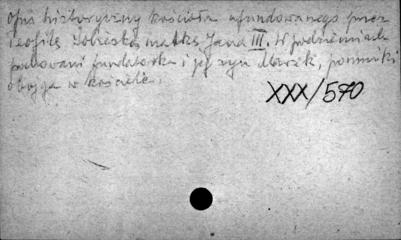 opis historyczny kościoła ufundowanego przez
Teofilę Sobieską matkę Jana III. W podziemiach
pochowani fundatorka i jej syn Marek, pomniki
obojga w kościele.
XXX/570